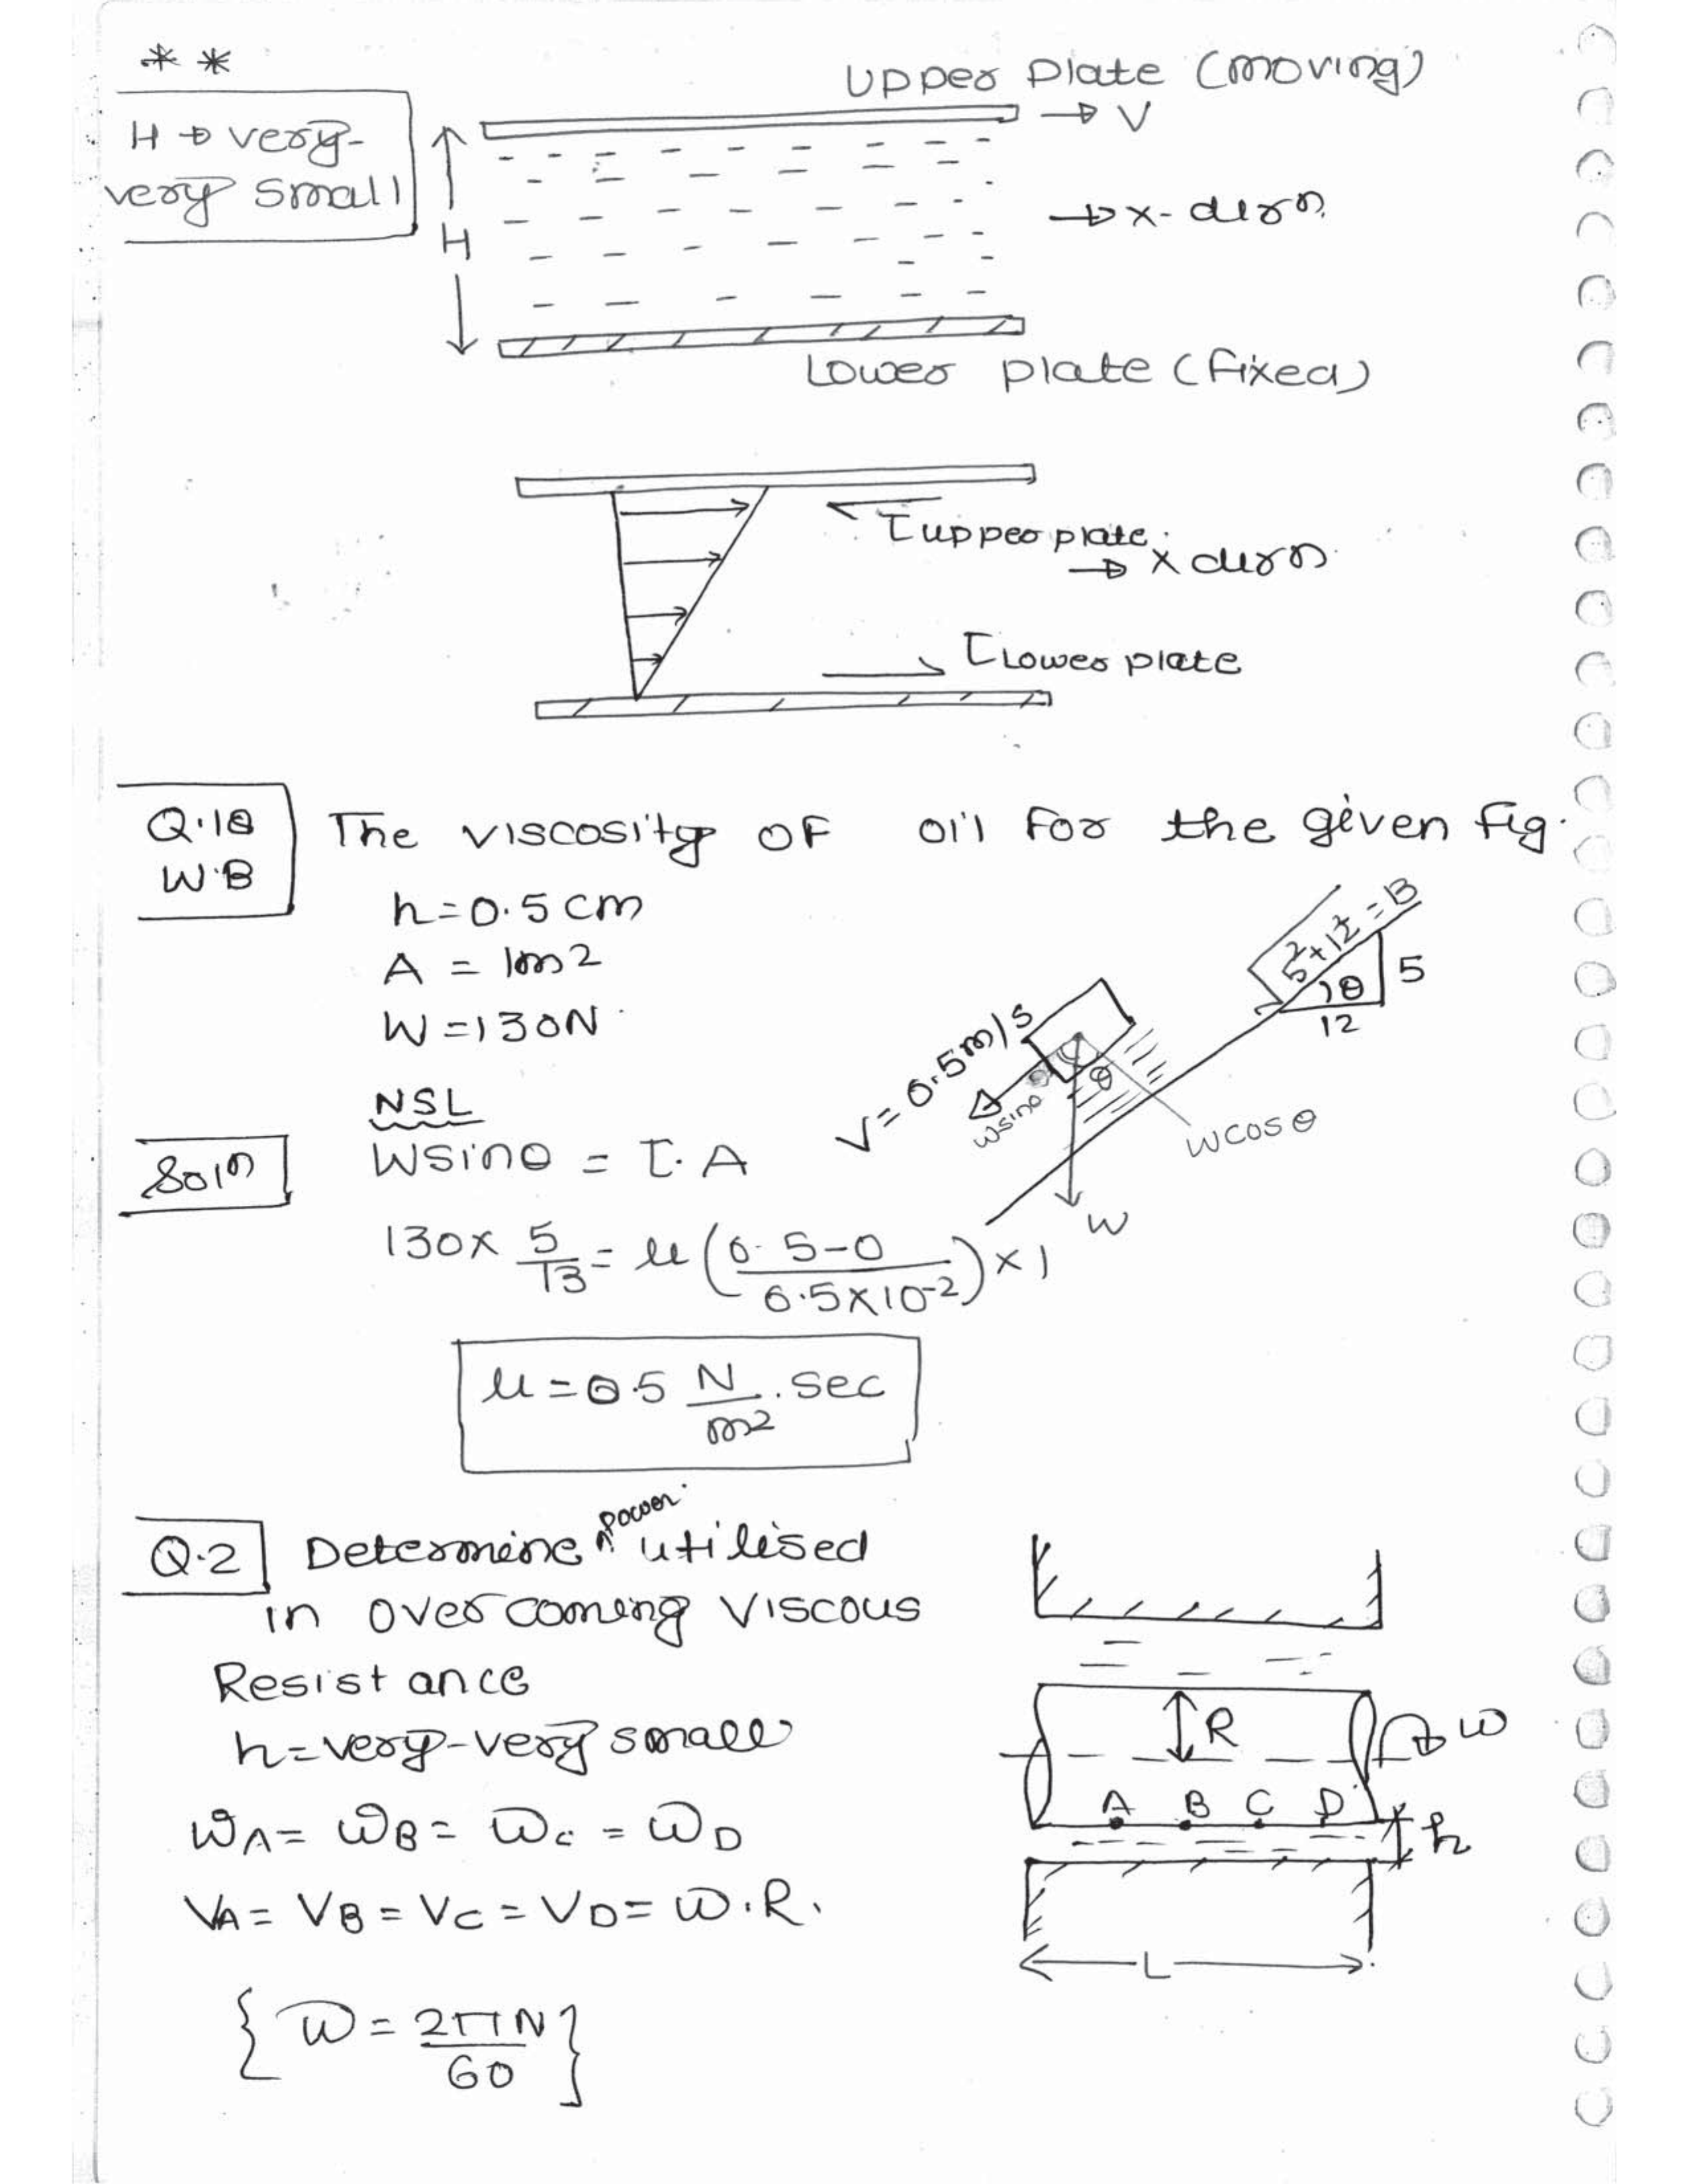 * *
Upper Plate (moving)
→ V
H → very-
very small
H
→ x- dirn.
Lower plate (fixed)
τ upper plate
→ x dirn
τ Lower plate
Q.18
W.B
The viscosity of oil for the given fig.
h=0.5 cm
A = 1m2
W=130N
√5²+12² = 13
5
θ
12
V= 0.5m/s
Wsinθ
θ
Wcosθ
W
NSL
Soln
Wsinθ = τ. A
130× 5/13 = μ (0.5-0 / 0.5×10-2) ×1
μ=0.5 N/m2 . sec
Q.2
Determine ^power utilised
in over coming Viscous
Resist ance
h=very-very small
ωA= ωB= ωc = ωD
VA= VB= VC= VD= ω.R.
{ ω = 2πN/60 }
R
ω
A B C D
h
L